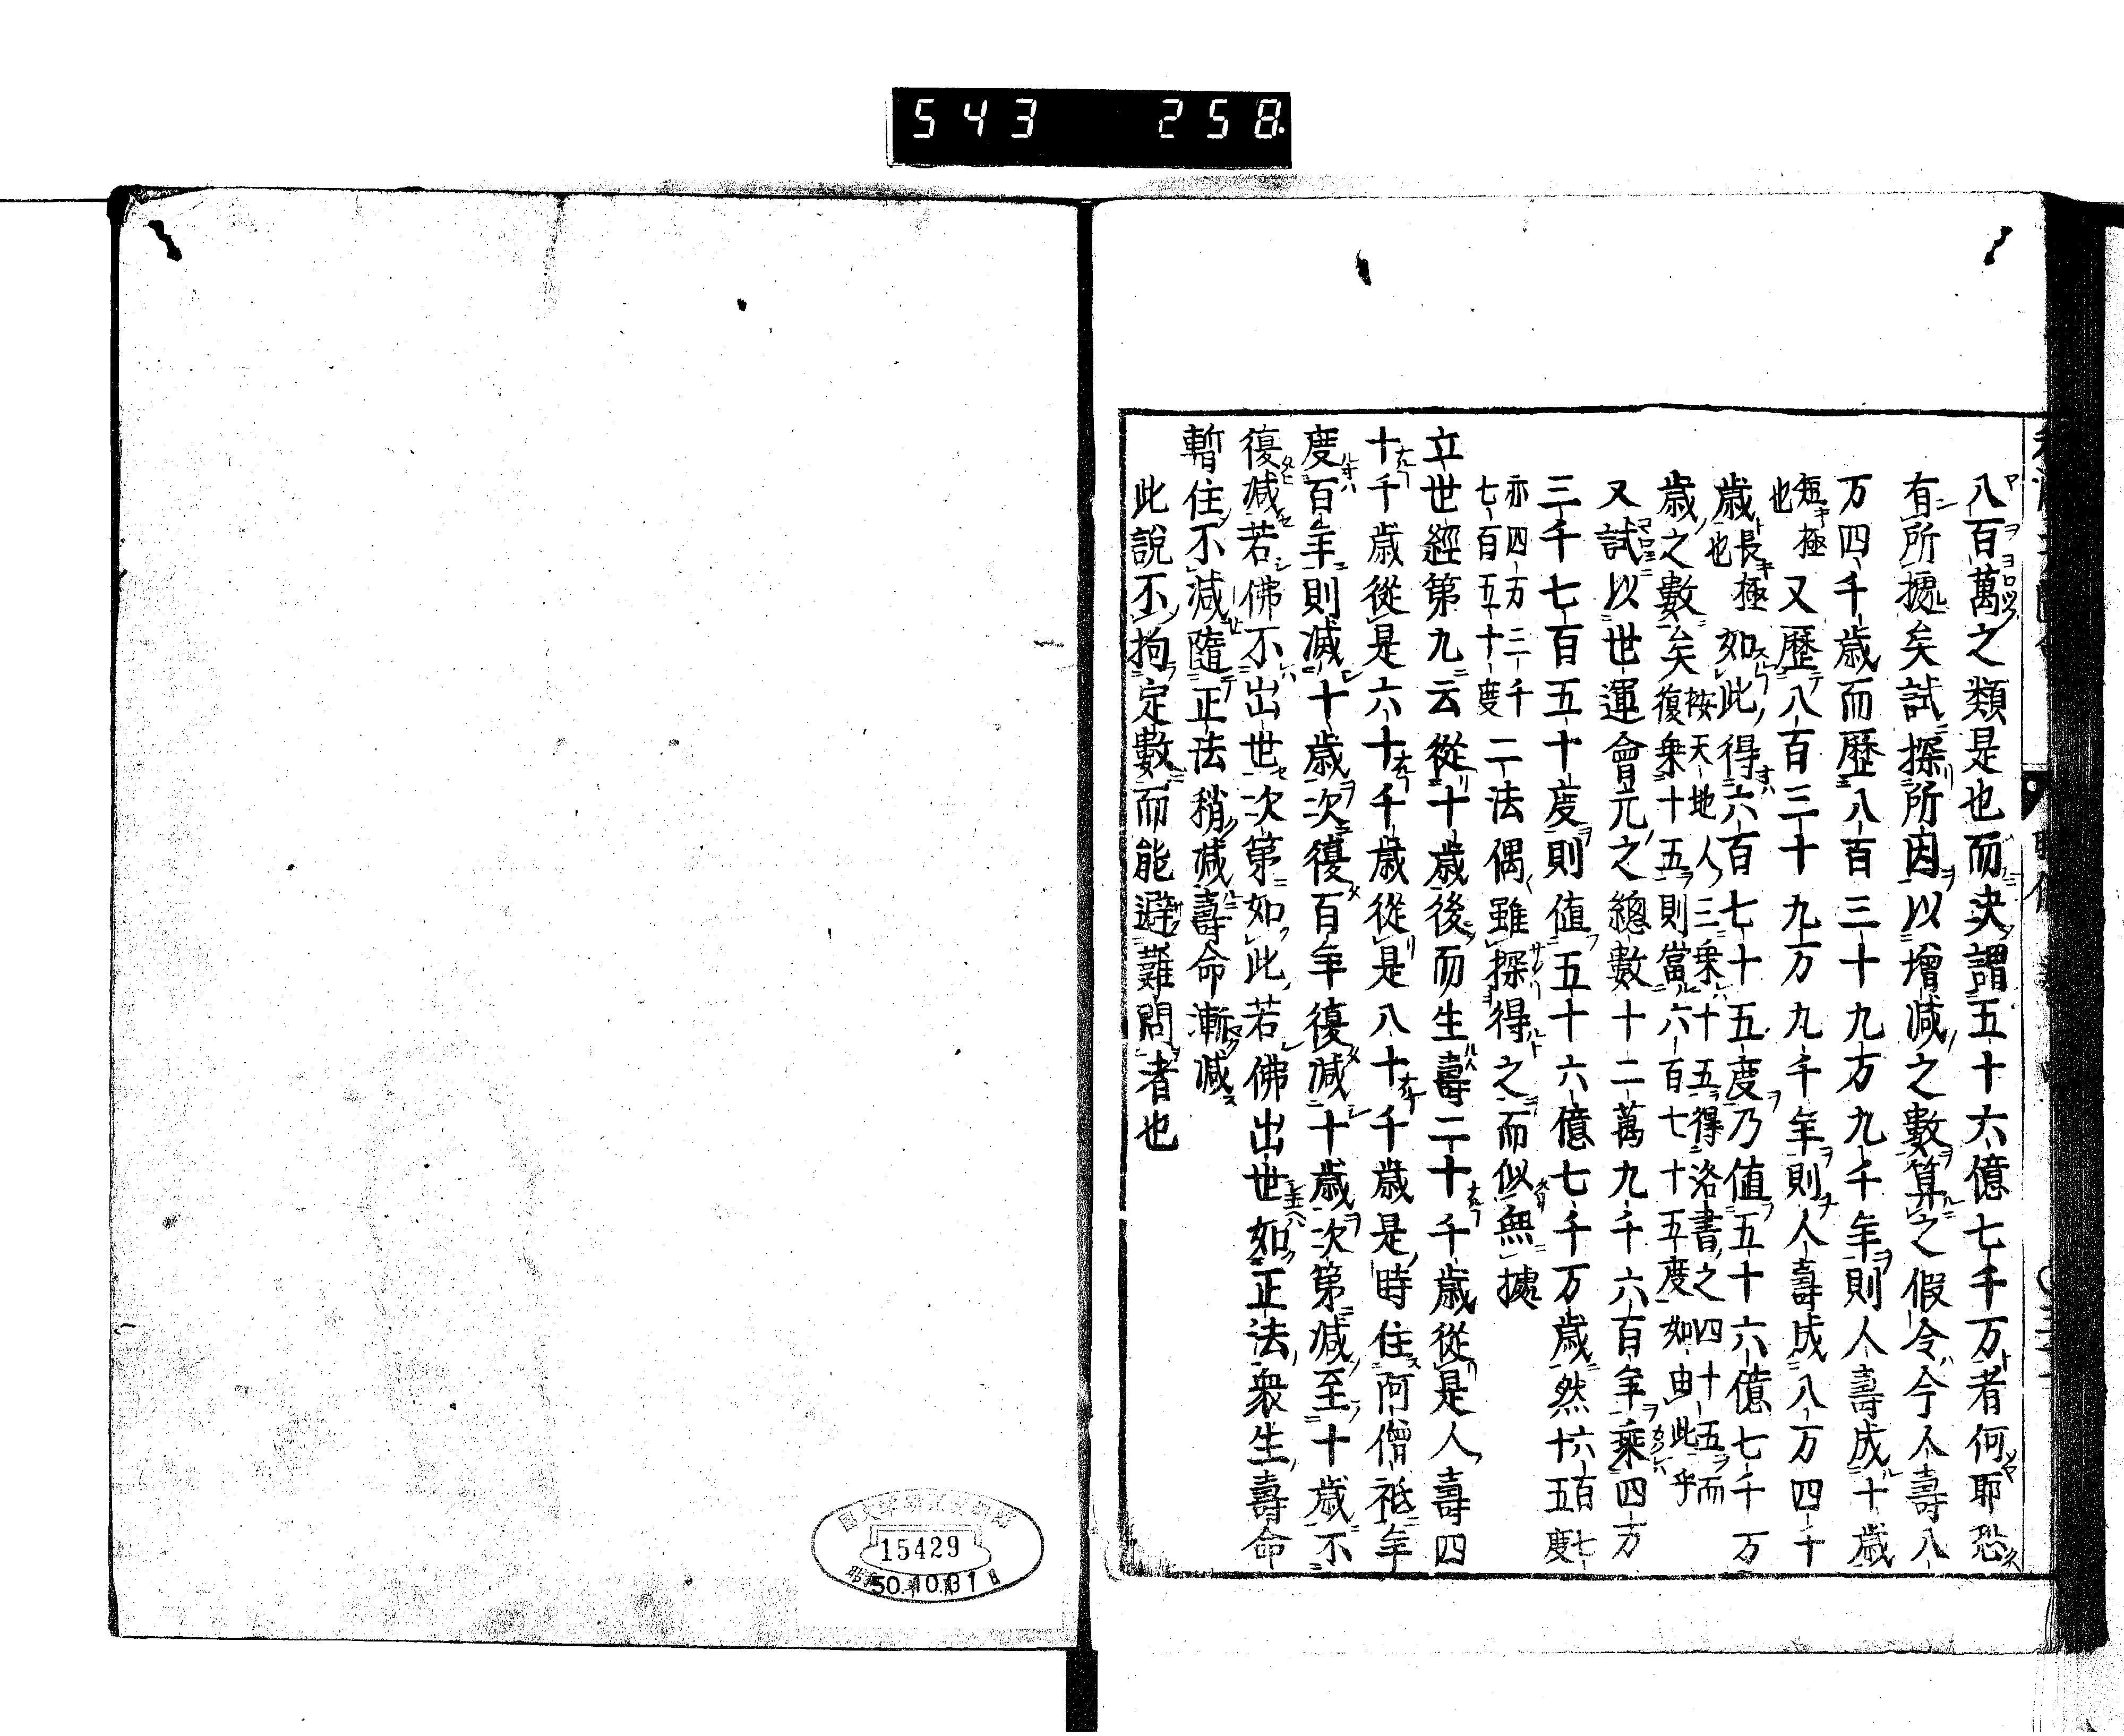 543 258
八百萬之類是也而決謂五十六億七千万者何耶恐
有所據矣試探所因以增減之數算之假令今人壽八
万四千歲而歷八百三十九万九千年則人壽成十歲
短極也又歷八百三十九万九千年則人壽成八万四千
歲長極也如此得六百七十五度乃值五十六億七千万
歲之數矣按天地人三乗十五得洛書之四十五而復乗十五則當六百七十五度如由此乎
又試以世運會元之總數十二萬九千六百年乘四万
三千七百五十度則值五十六億七千万歲然六百七十五度
亦四万三千七百五十度二法偶雖探得之而似無據
立世經第九云從十歲後而生壽二十千歲從是人壽四
十千歲從是六十千歲從是八十千歲是時住阿僧祇年
度百年則減十歲次復百年復減十歲次第減至十歲不
復減若佛不出世次第如此若佛出世如正法衆生壽命
暫住不減隨正法稍減壽命漸減
此說不拘定數而能避難問者也
15429
50.10.31